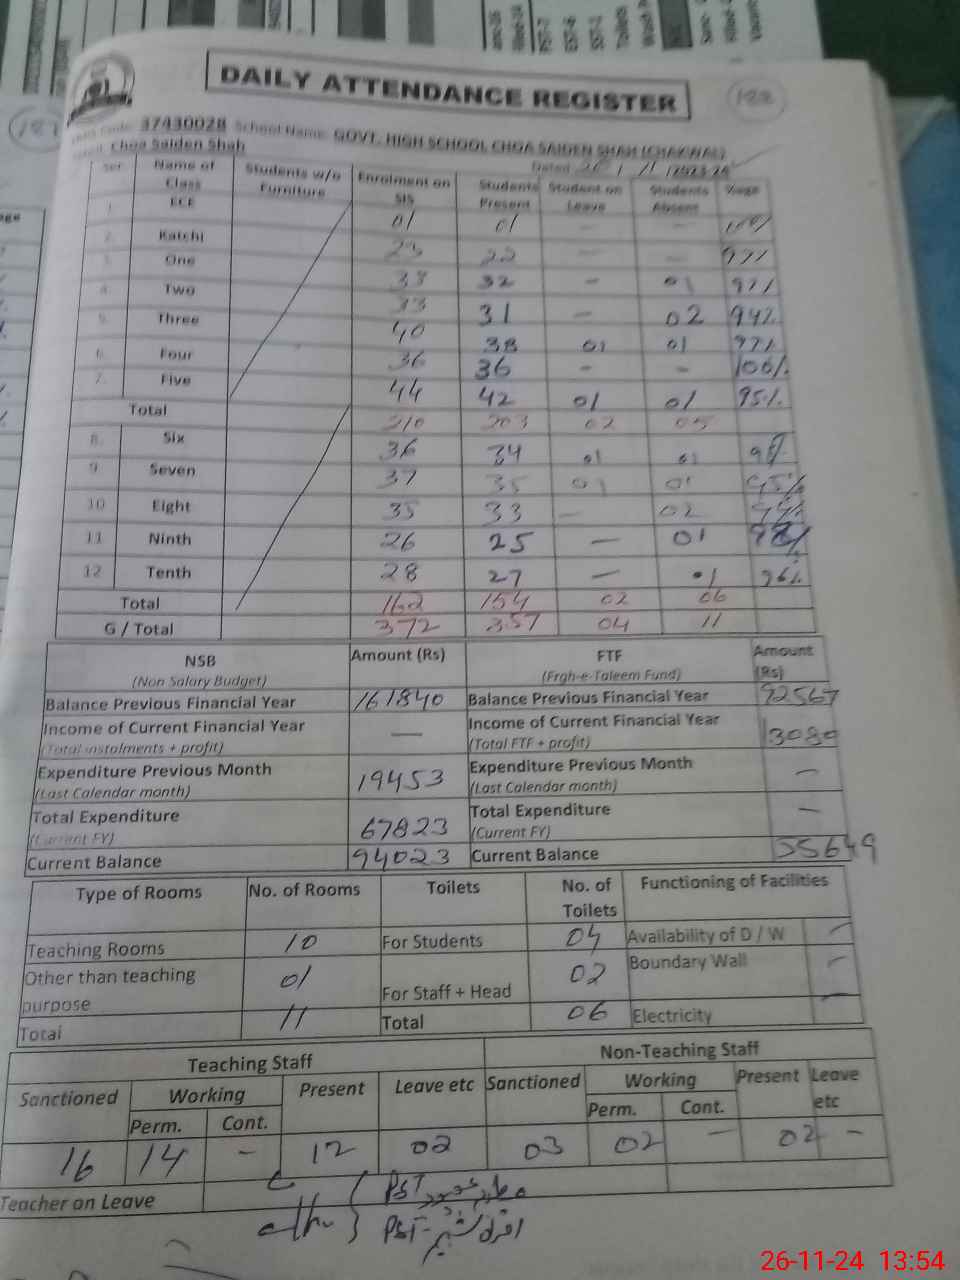 DAILY ATTENDANCE REGISTER
188
187
37430028 School Name: GOVT. HIGH SCHOOL CHOA SAIDEN SHAH (CHAKWAL)
Choa Saiden Shah
Dated 26 / 11 /
Ser Name of Class Students w/o Furniture Enrolment on SIS Students Present Student on Leave Students Absent %age
1 ECE 01 01 — — 100%
2 Katchi 23 22 — —
3 One 33 32 — 01 97%
4 Two 33 31 — 02 94%
5 Three 40 38 01 01 97%
6. Four 36 36 - - 100%
7. Five 44 42 01 01 95%
Total 210 203 02 05
8. Six 36 34 01 01
9 Seven 37 35 01 01 95%
10 Eight 35 33 — 02
11 Ninth 26 25 — 01
12 Tenth 28 27 — 01 96%
Total 162 154 02 06
G / Total 372 357 04 11
NSB (Non Salary Budget) Amount (Rs) FTF (Frgh-e-Taleem Fund) Amount (Rs)
Balance Previous Financial Year 161840 Balance Previous Financial Year 92567
Income of Current Financial Year (Total instalments + profit) — Income of Current Financial Year (Total FTF + profit) 13080
Expenditure Previous Month (Last Calendar month) 19453 Expenditure Previous Month (Last Calendar month) —
Total Expenditure (Current FY) 67823 Total Expenditure (Current FY) —
Current Balance 94023 Current Balance 55649
Type of Rooms No. of Rooms Toilets No. of Toilets Functioning of Facilities
Teaching Rooms 10 For Students 04 Availability of D / W
Other than teaching purpose 01 For Staff + Head 02 Boundary Wall
Total 11 Total 06 Electricity
Teaching Staff Non-Teaching Staff
Sanctioned Working Present Leave etc Sanctioned Working Present Leave etc
Perm. Cont. Perm. Cont.
16 14 - 12 02 03 02 — 02 -
Teacher on Leave
PST
PST
26-11-24 13:54